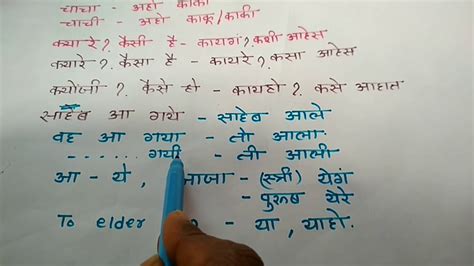 चाचा - अहो काका
चाची - अहो काकू/काकी
क्यारे? कैसी है - कायगं? कशी आहेस
क्यारे? कैसा है - कायरे? कसा आहेस
क्योंजी? कैसे हो - कायहो? कसे आहात
साहेब आ गये - साहेब आले
वह आ गया - तो आला
...... गयी - ती आली
आ - ये, आजा - (स्त्री) येगं
- पुरुष येरे
To elder - या, याहो.